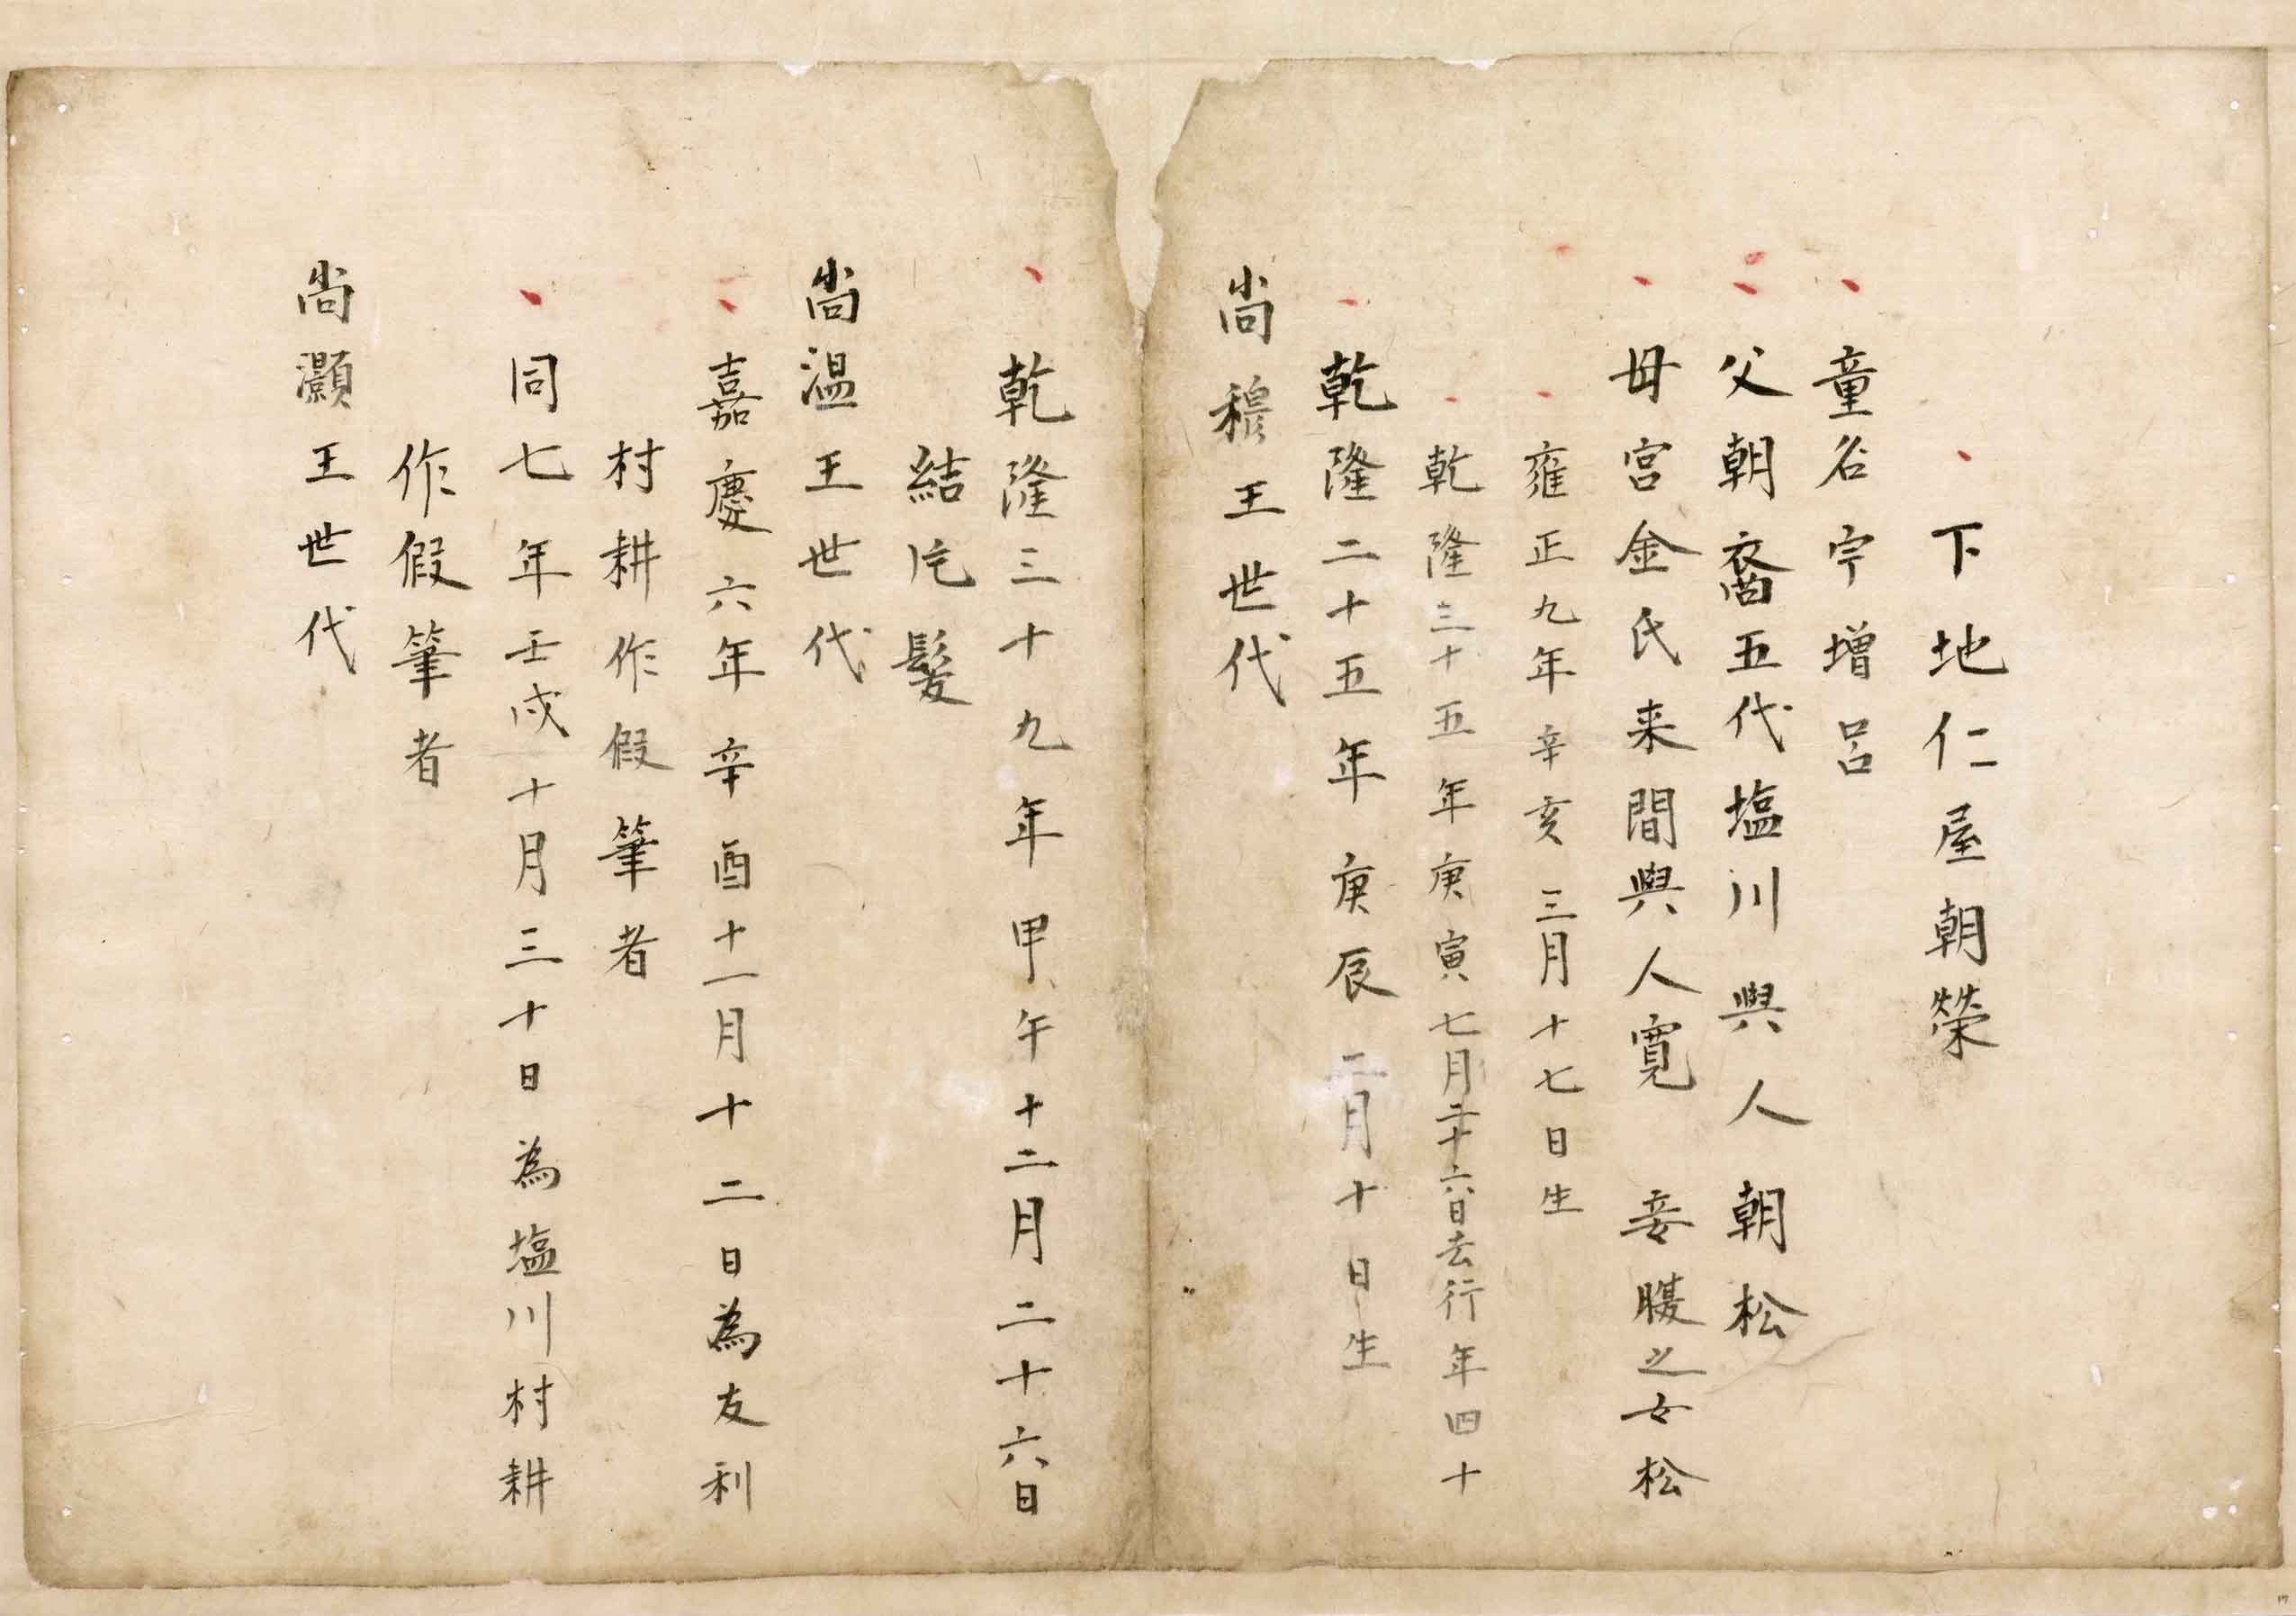 下地仁屋朝榮
童名宇増呂
父朝裔五代塩川與人朝松
母宮金氏来間與人寛 妾腹之女松
雍正九年辛亥三月十七日生
乾隆三十五年庚寅七月二十六日去行年四十
乾隆二十五年庚辰二月十日生
尚穆王世代
乾隆三十九年甲午十二月二十六日
結片髪
尚温王世代
嘉慶六年辛酉十一月十二日為友利
村耕作假筆者
同七年壬戌十月三十日為塩川村耕
作假筆者
尚灝王世代